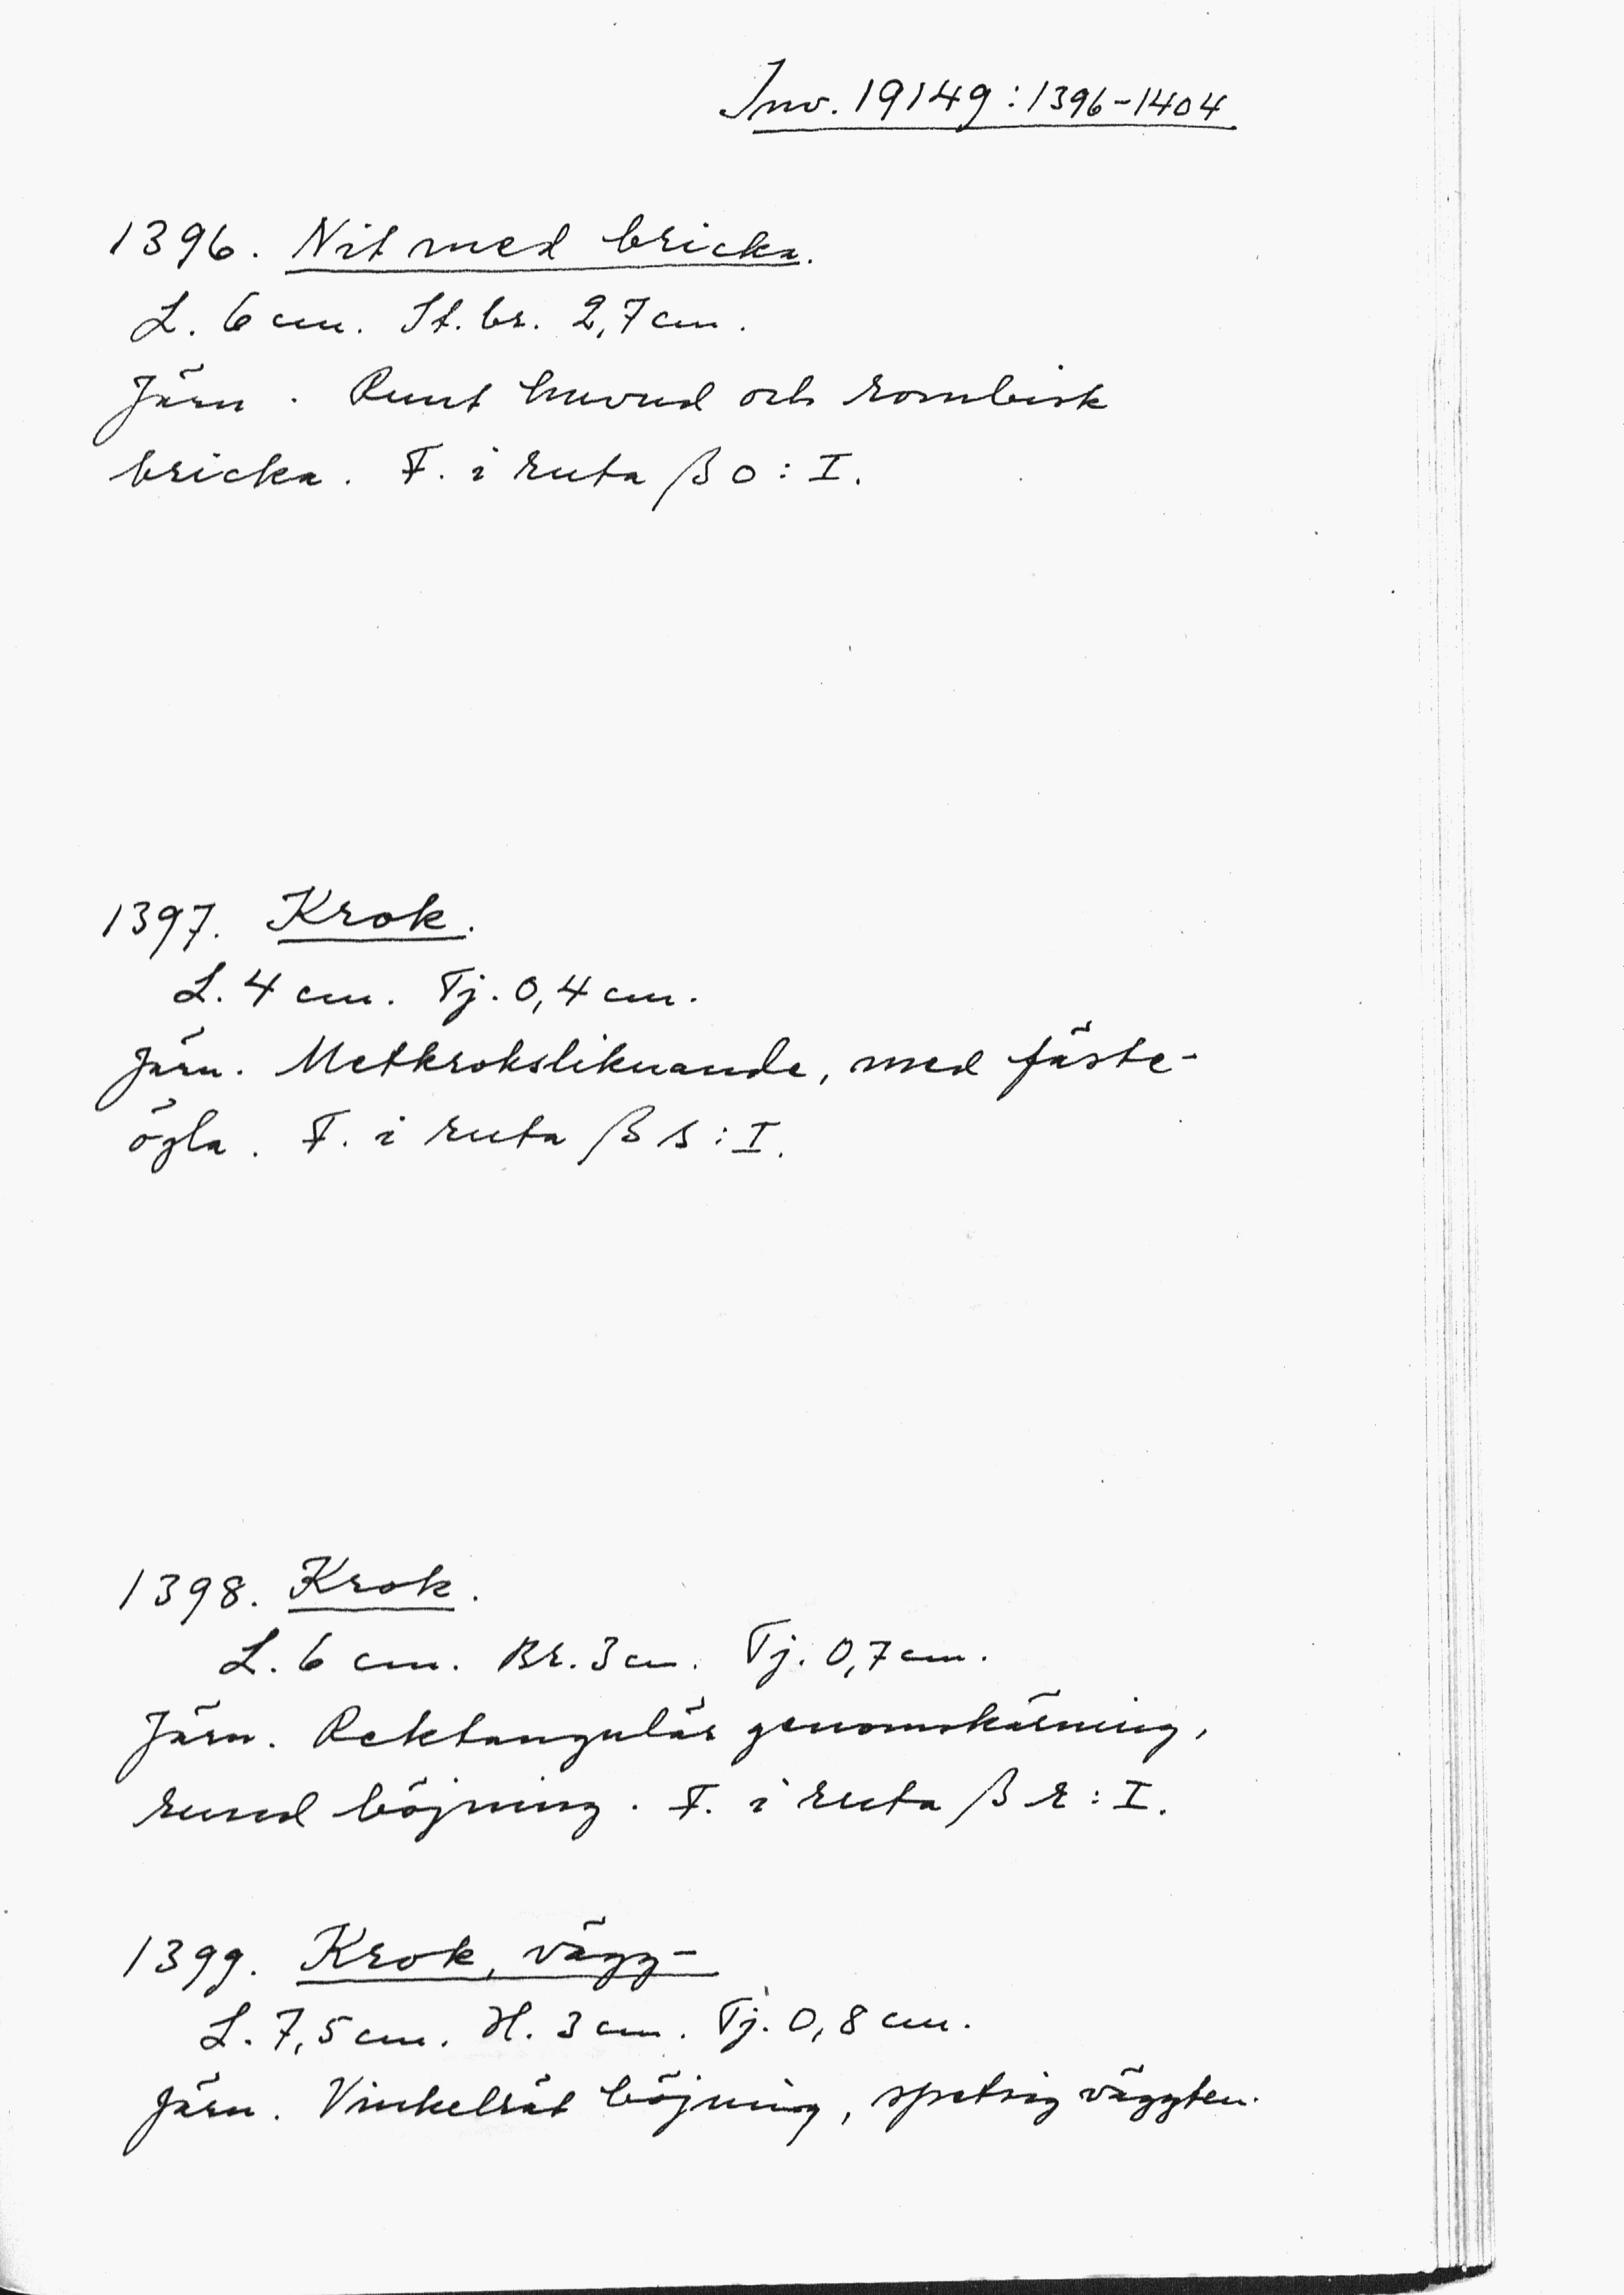 Inv. 19149:1396-1404
1396. Nit med bricka.
L. 6 cm. St. br. 2,7 cm.
Järn. Runt huvud och rombisk
bricka. F. i ruta β o : I.
1397. Krok.
L. 4 cm. Tj. 0,4 cm.
Järn. Metkroksliknande, med fäste-
ögla. F. i ruta β s : I.
1398. Krok.
L. 6 cm. Br. 3 cm. Tj. 0,7 cm.
Järn. Rektangulär genomskärning,
rund böjning. F. i ruta β r : I.
1399. Krok, vägg-
L. 7,5 cm. H. 3 cm. Tj. 0,8 cm.
Järn. Vinkelrät böjning, spetsig väggten.